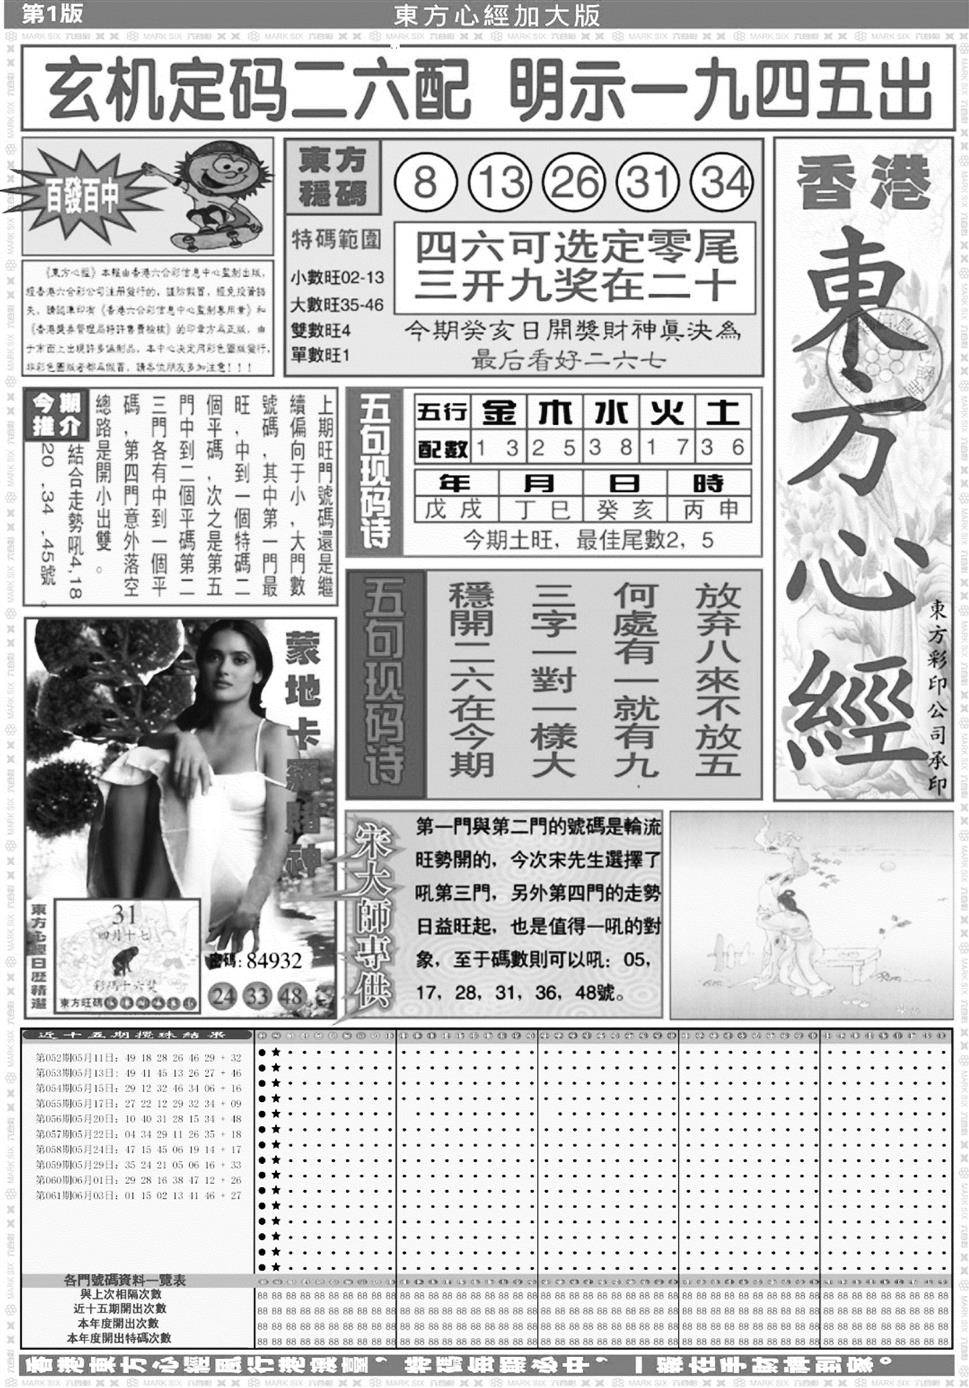 第1版
東方心經加大版
玄机定码二六配 明示一九四五出
百發百中
《東方心經》本報由香港六合彩信息中心監制出版，
經香港六合彩公司注冊發行的，謹防假冒，避免投資損
失，請認準印有《香港六合彩信息中心監制專用章》和
《香港獎券管理局特許書費檢核》的印章方爲正版，由
于市面上出現許多僞制品，本中心決定用彩色圖版發行，
非彩色圖版者都爲假冒，請各位朋友多加注意！！！
東方
穩碼
8 13 26 31 34
特碼範圍
小數旺02-13
大數旺35-46
雙數旺4
單數旺1
四六可选定零尾
三开九奖在二十
今期癸亥日開獎財神真決為
最后看好二六七
香港
東方心經
東方彩印公司承印
今期
推介
上期旺門號碼還是繼
續偏向于小，大門數
號碼，其中第一門最
旺，中到一個特碼二
個平碼，次之是第五
門中到二個平碼第二
三門各有中到一個平
碼，第四門意外落空
總路是開小出雙。
結合走勢吼4,18
20,34,45號。
五句现码诗
五行 金 木 水 火 土
配數 1 3 2 5 3 8 1 7 3 6
年 月 日 時
戊戌 丁巳 癸亥 丙申
今期土旺，最佳尾數2，5
五句现码诗
放弃八來不放五
何處有一就有九
三字一對一樣大
穩開二六在今期
蒙地卡羅賭神
東方心經日歷精選
31
四月十七
彩碼十六號
東方旺碼
密碼:84932
24 33 48
宋大師專供
第一門與第二門的號碼是輪流
旺勢開的，今次宋先生選擇了
吼第三門，另外第四門的走勢
日益旺起，也是值得一吼的對
象，至于碼數則可以吼：05，
17，28，31，36，48號。
近十五期攪珠結果
第052期05月11日：49 18 28 26 46 29 + 32
第053期05月13日：49 41 45 13 26 27 + 46
第054期05月15日：29 12 32 46 34 06 + 16
第055期05月17日：27 22 12 29 32 34 + 09
第056期05月20日：10 40 31 28 15 34 + 48
第057期05月22日：04 34 29 11 26 35 + 18
第058期05月24日：47 15 45 06 19 14 + 17
第059期05月29日：35 24 21 05 06 16 + 33
第060期06月01日：29 28 16 38 47 12 + 26
第061期06月03日：01 15 02 13 41 46 + 27
各門號碼資料一覽表
與上次相隔次數
近十五期開出次數
本年度開出次數
本年度開出特碼次數
香港東方心經風行港澳臺，特碼每期必中，一版在手財神到家。